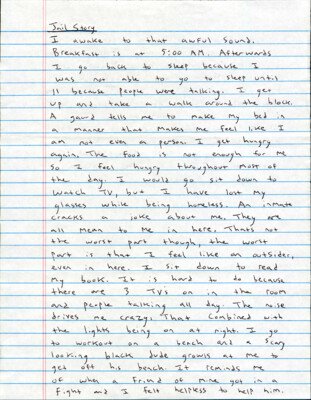 Jail Story
I awake to that awful sound.
Breakfast is at 5:00 AM. Afterwards
I go back to sleep because I
was not able to go to sleep until
11 because people were talking. I get
up and take a walk around the block.
A gaurd tells me to make my bed in
a manner that makes me feel like I
am not even a person. I get hungry
again. The food is not enough for me
so I feel hungry throughout most of
the day. I would go sit down to
watch TV, but I have lost my
glasses while being homeless. An inmate
cracks a joke about me. They are
all mean to me in here. Thats not
the worst part though, the worst
part is that I feel like an outsider,
even in here. I sit down to read
my book. It is hard to do because
there are 3 TVs on in the room
and people talking all day. The noise
drives me crazy. That combined with
the lights being on at night. I go
to workout on a bench and a scary
looking black dude growls at me to
get off his bench. It reminds me
of when a friend of mine got in a
fight and I felt helpless to help him.